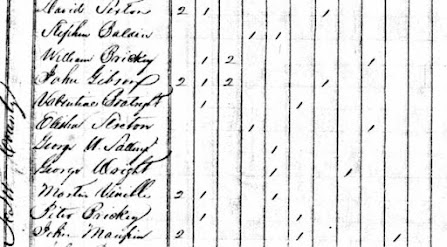 David Sexton 2 1 1
Stephen Baldin 1 1
William Brickey 1 2 1
John Gibson 2 1 2 1
1 1
Elisha Sexton 1 1
George W. 1
George Wright 1 1
Martin 2 1 1
Peter Brickey 1 1
John Maupin 2 1 1
County